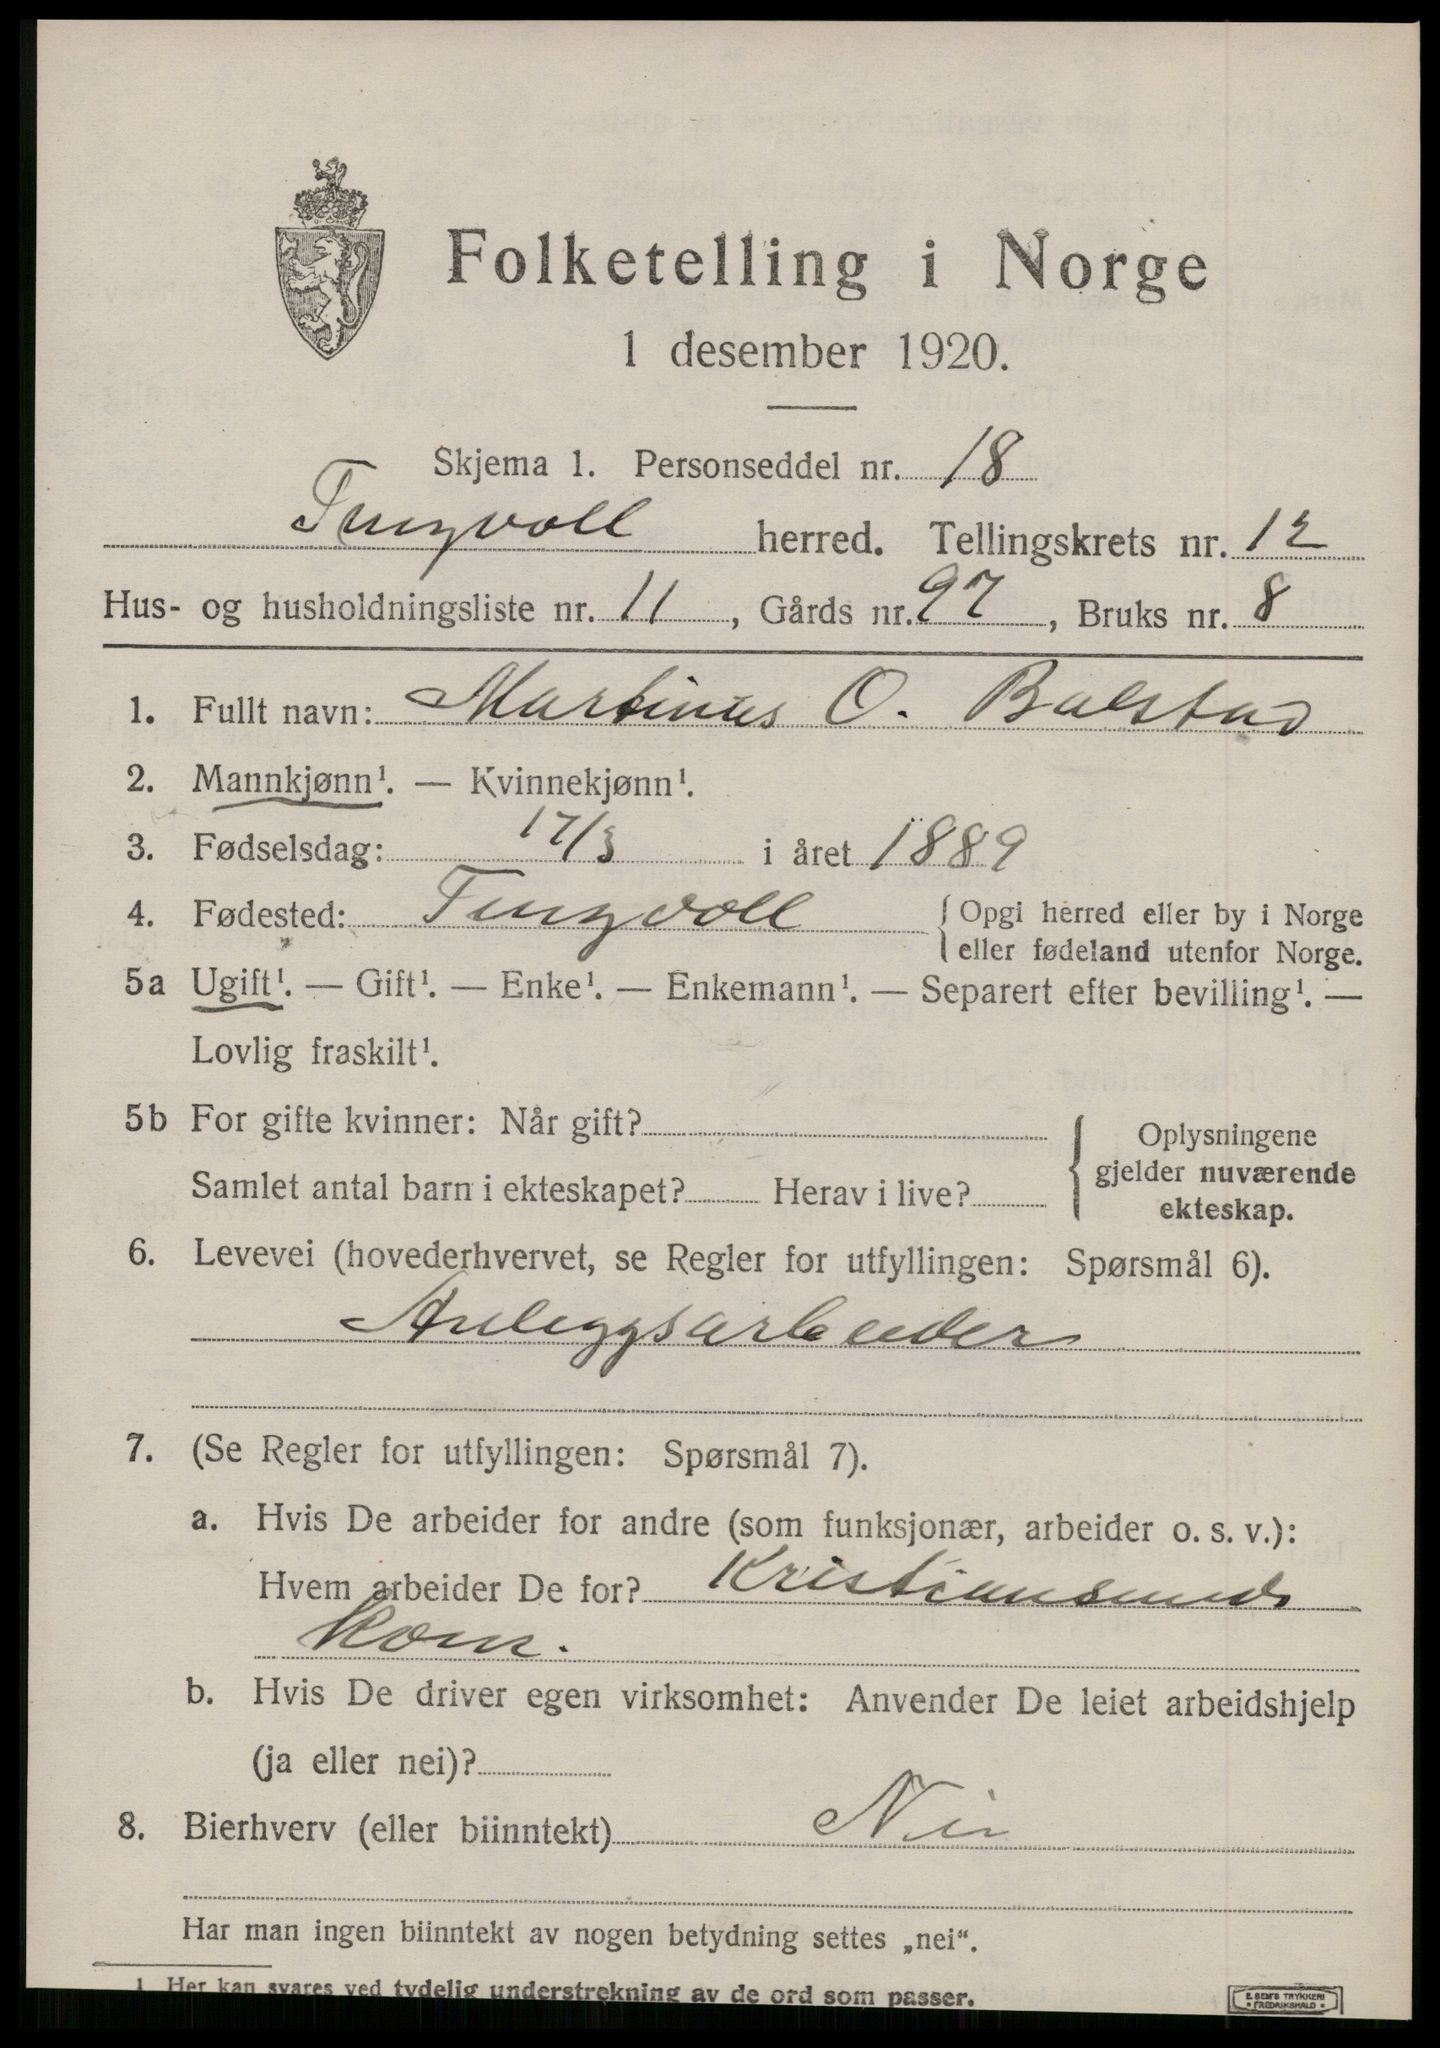 Folketelling i Norge
1 desember 1920.
Skjema 1. Personseddel nr. 18
Tingvoll herred. Tellingskrets nr. 12
Hus- og husholdningsliste nr. 11, Gårds nr. 97, Bruks nr. 8
1. Fullt navn: Martinus O. Balstad
2. Mannkjønn¹. — Kvinnekjønn¹.
3. Fødselsdag: 17/3 i året 1889
4. Fødested: Tingvoll { Opgi herred eller by i Norge
eller fødeland utenfor Norge.
5a Ugift¹. — Gift¹. — Enke¹. — Enkemann¹. — Separert efter bevilling¹. —
Lovlig fraskilt¹.
5b For gifte kvinner: Når gift?
Samlet antal barn i ekteskapet? Herav i live?
{ Oplysningene
gjelder nuværende
ekteskap.
6. Levevei (hovederhvervet, se Regler for utfyllingen: Spørsmål 6).
Anleggsarbeider
7. (Se Regler for utfyllingen: Spørsmål 7).
a. Hvis De arbeider for andre (som funksjonær, arbeider o. s. v.):
Hvem arbeider De for? Kristiansunds
kom.
b. Hvis De driver egen virksomhet: Anvender De leiet arbeidshjelp
(ja eller nei)?
8. Bierhverv (eller biinntekt) Nei
Har man ingen biinntekt av nogen betydning settes „nei“.
1 Her kan svares ved tydelig understrekning av de ord som passer.
E. SEM'S TRYKKERI
• FREDRIKSHALD •